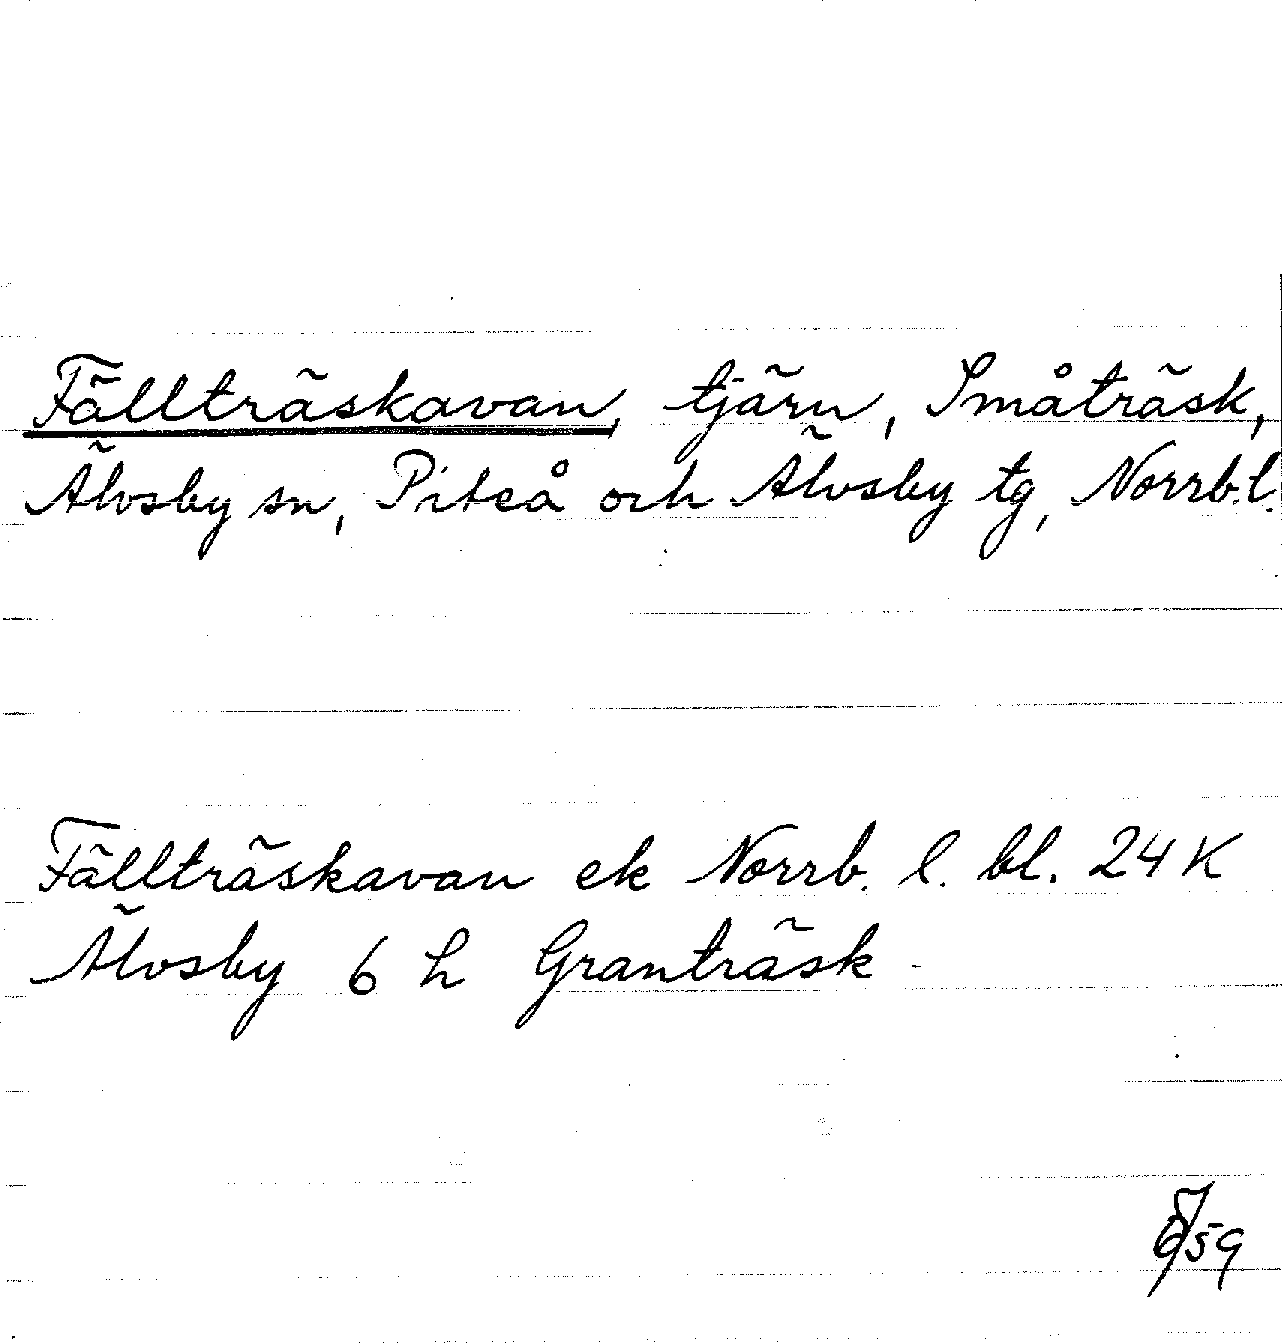 Fällträskavan, tjärn, Småträsk,
Älvsby sn, Piteå och Älvsby tg, Norrb.l.
Fällträskavan ek Norrb. l. bl. 24 K
Älvsby 6 h Granträsk